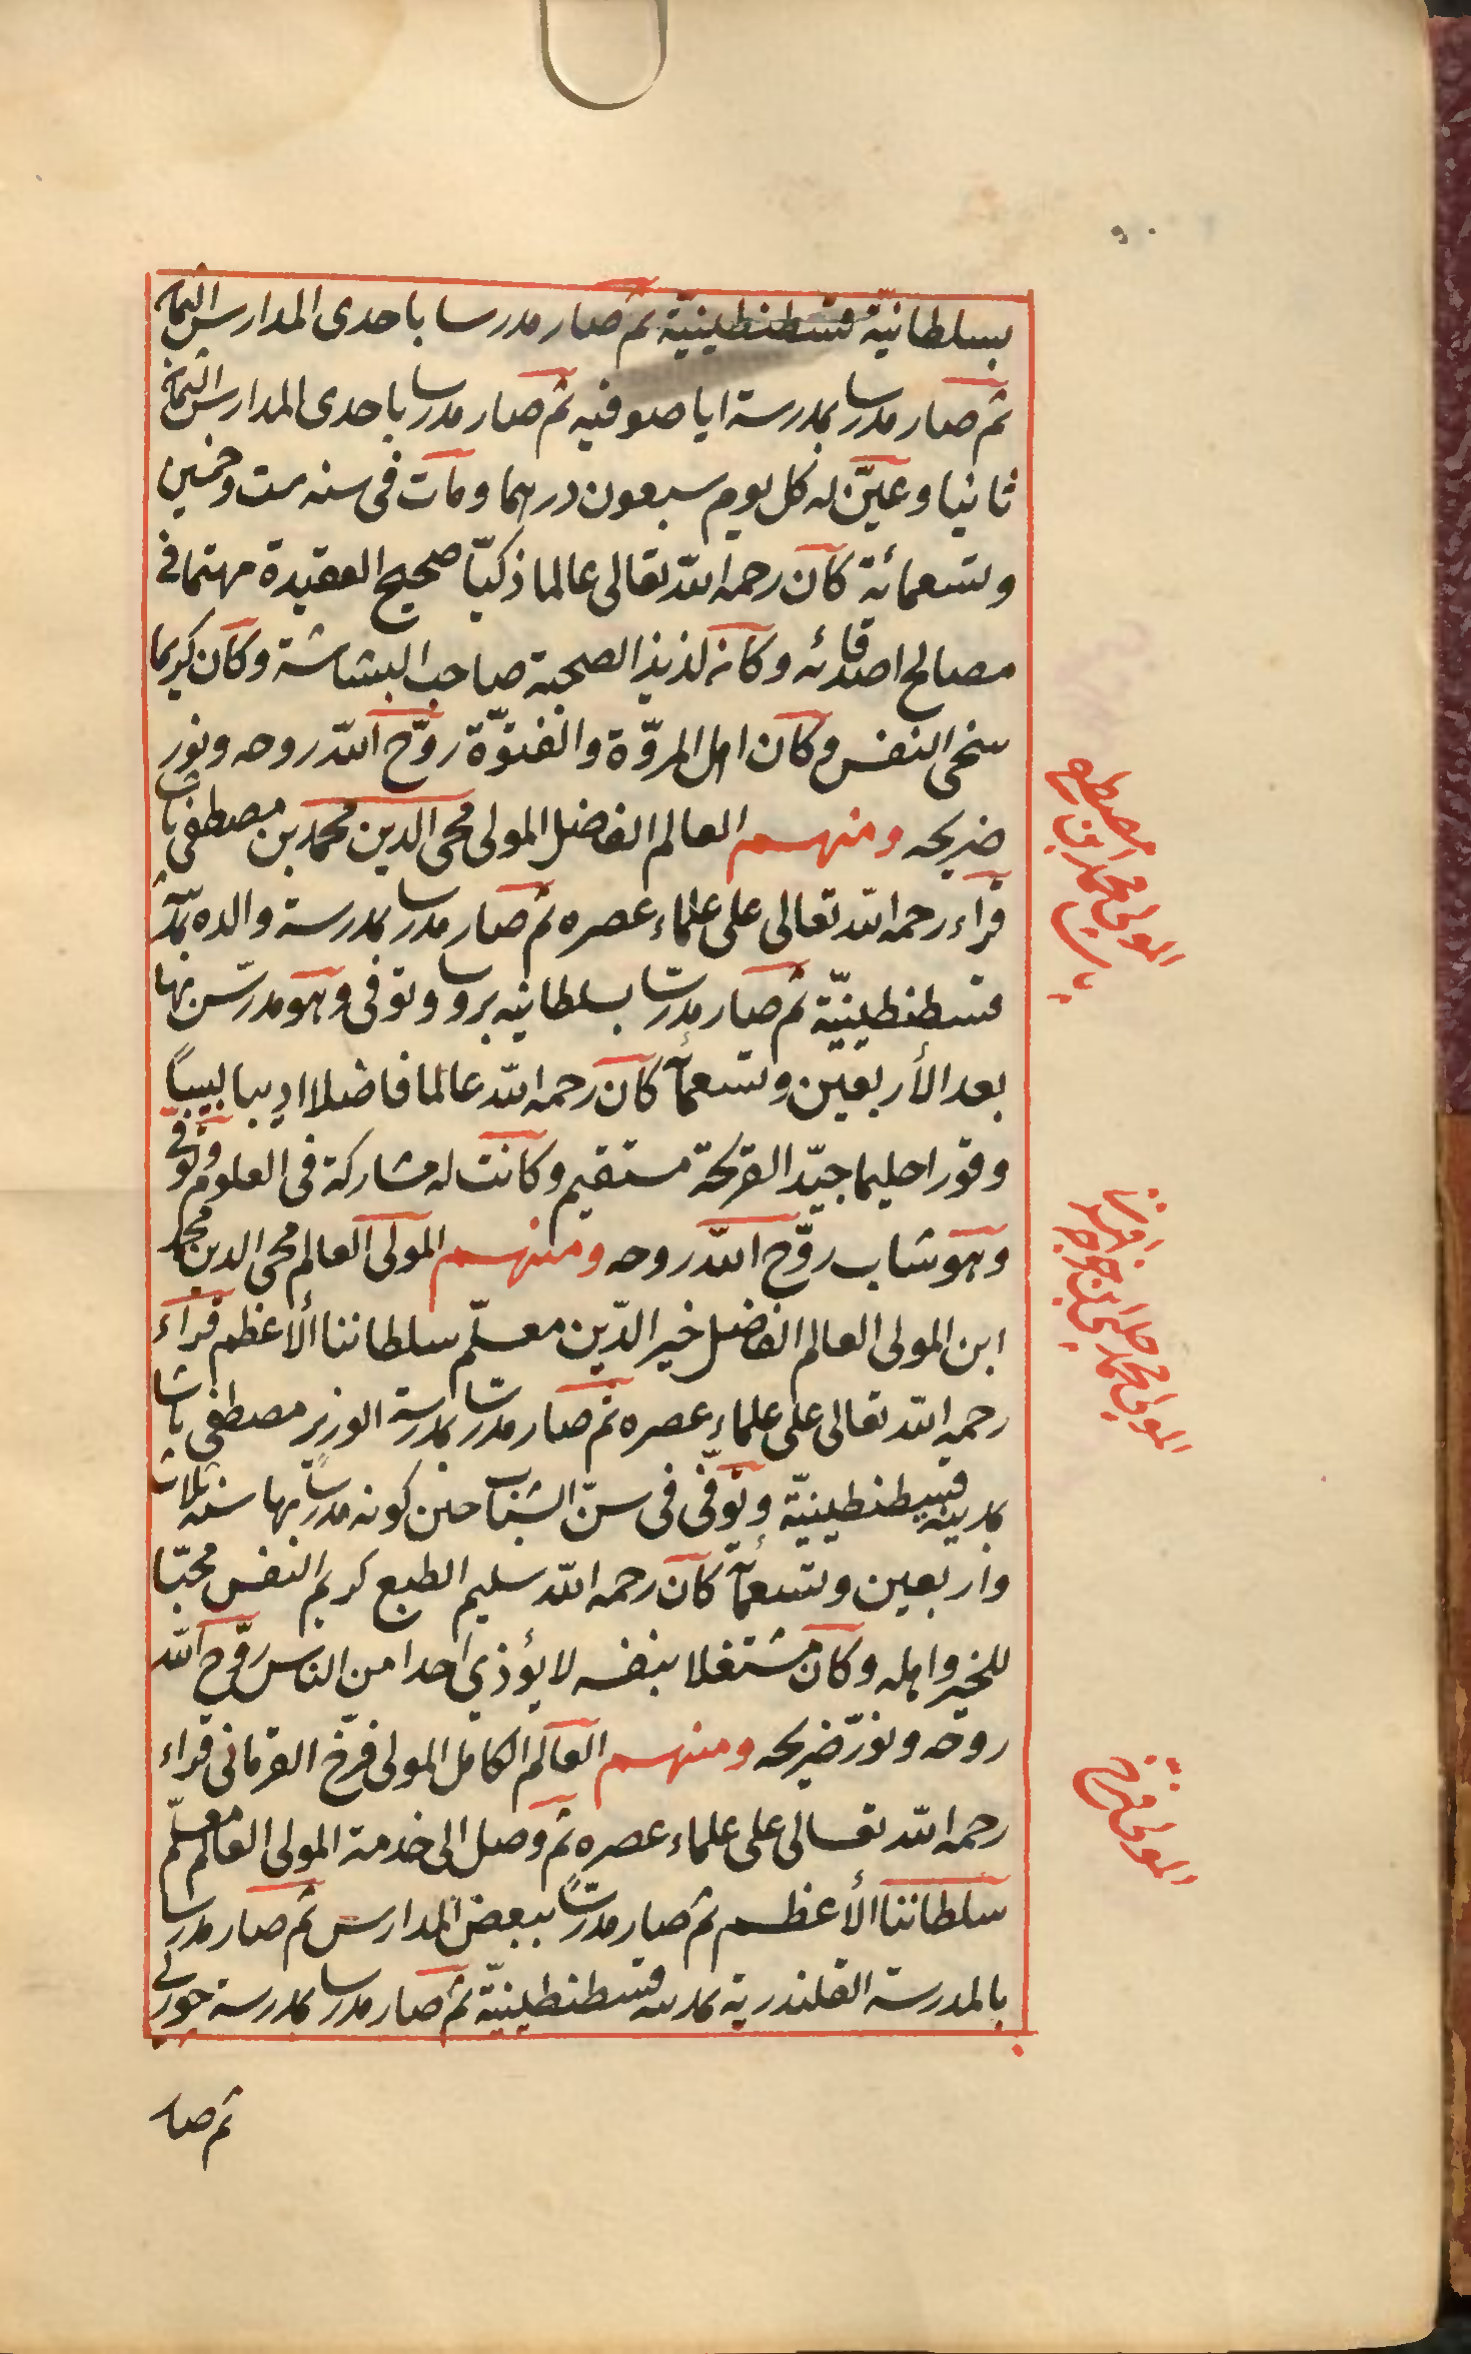 بسلطانيّة قسطنطينيّة ثم صار مدرسا باحدى المدارس الثمان
ثم صار مدرسا بمدرسة ايا صوفيه ثم صار مدرسا باحدى المدارس الثمان
ثانيا وعيّن له كل يوم سبعون درهما ومات فى سنه ست وخمسين
وتسعمائة كان رحمه الله تعالى عالما ذكيّا صحيح العقيدة مهتما فى
مصالح اصدقائه وكانه لذيذ الصحبة صاحب البشاشة وكان كريما
سخى النفس وكان اهل المروّة والفتوّة روّح الله روحه ونور
ضريحه ومنهم العالم الفاضل المولى محى الدين محمد بن مصطفى باشا
قراء رحمه الله تعالى على علماء عصره ثم صار مدرسا بمدرسة والده بمدينة
قسطنطينيّة ثم صار مدرسا بسلطانيه بروسا وتوفى وهو مدرّس بها
بعد الأربعين وتسعمأ كان رحمه الله عالما فاضلا اديبا لبيباً
وقورا حليما جيّد القريحة مستقيم وكانت له مشاركة فى العلوم وتوفى
وهو شاب روّح الله روحه ومنهم المولى العالم محى الدين محمد
ابن المولى العالم الفاضل خير الدّين معلّم سلطاننا الأعظم قراء
رحمه الله تعالى على علماء عصره ثم صار مدرسا بمدرسة الوزير مصطفى باشا
بمدينه قسطنطينيّة وتوفّى فى سنّ الشباب حين كونه مدرسا بها سنه ثلاث
واربعين وتسعمأ كان رحمه الله سليم الطبع كريم النفس محبّا
للخير واهله وكان مشتغلا بنفسه لا يؤذي احدا من الناس روّح الله
روحه ونوّر ضريحه ومنهم العالم الكامل المولى فرّخ القرمانى قراء
رحمه الله تعالى على علماء عصره ثم وصل الى خدمة المولى العالم معلّم
سلطاننا الأعظم ثم صار مدرساً ببعض المدارس ثم صار مدرسا
بالمدرسة القلندرية بمدينه قسطنطينيّة ثم صار مدرسا بمدرسة جورلى
ثم صار
المولى محمد بن مصطفى
باشا
المولى محمد چلبى ابن خواجه
المولى فرخ